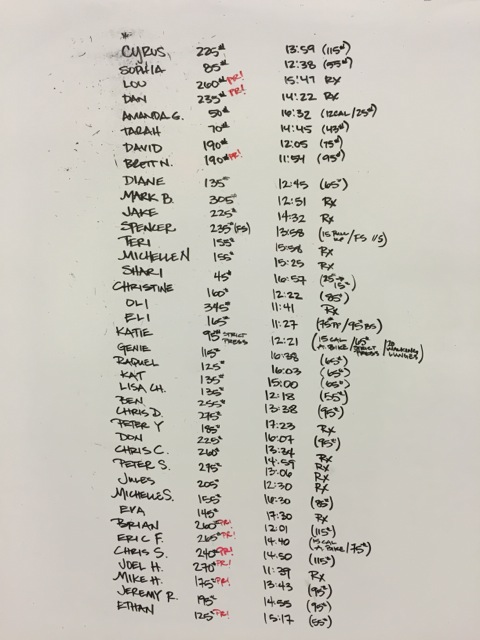 CYRUS 225# 13:59 (115#)
SOPHIA 85# 12:38 (55#)
LOU 260# PR! 15:47 RX
DAN 235# PR! 14:22 RX
AMANDA G. 50# 16:32 (12CAL/25#)
TARAH 70# 14:45 (43#)
DAVID 190# 12:05 (75#)
BRETT N. 190# PR! 11:54 (95#)
DIANE 135# 12:45 (65#)
MARK B. 305# 12:51 RX
JAKE 225# 14:32 RX
SPENCER 235# (FS) 13:58 (15 PULL UP/FS 115)
TERI 155# 15:58 RX
MICHELLE N 155# 15:25 RX
SHARI 45# 16:57 (25# → 15#)
CHRISTINE 160# 12:22 (85#)
OLI 345# 11:41 RX
ELI 165# 11:27 (75# /95# BS)
KATIE 95# STRICT PRESS 12:21 (15 CAL A. BIKE/65# STRICT PRESS/20 WALKING LUNGES)
GENIE 115# 16:38 (65#)
RAQUEL 125# 16:03 (65#)
KAT 135# 15:00 (65#)
LISA CH. 135# 12:18 (55#)
BEN 255# 13:38 (95#)
CHRIS D. 275# 17:23 RX
PETER Y 185# 16:07 (95#)
DON 225# 13:34 RX
CHRIS C. 260# 14:59 RX
PETER S. 275# 13:06 RX
JULES 205# 12:30 RX
MICHELLE S. 155# 16:30 (85#)
EVA 145# 17:30 RX
BRIAN 260# PR! 12:01 (115#)
ERIC F. 265# PR! 14:40 (15 CAL A. BIKE/75#)
CHRIS S. 240# PR! 14:50 (115#)
JOEL H. 270# PR! 11:39 RX
MIKE H. 175# PR! 13:43 (95#)
JEREMY R. 195# 14:55 (95#)
ETHAN 125# PR! 15:17 (55#)